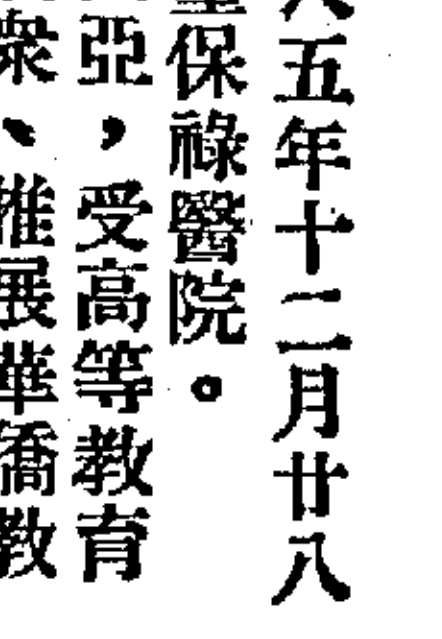 五年十二月廿八
保祿醫院。
亞，受高等教育
眾、推展華僑教